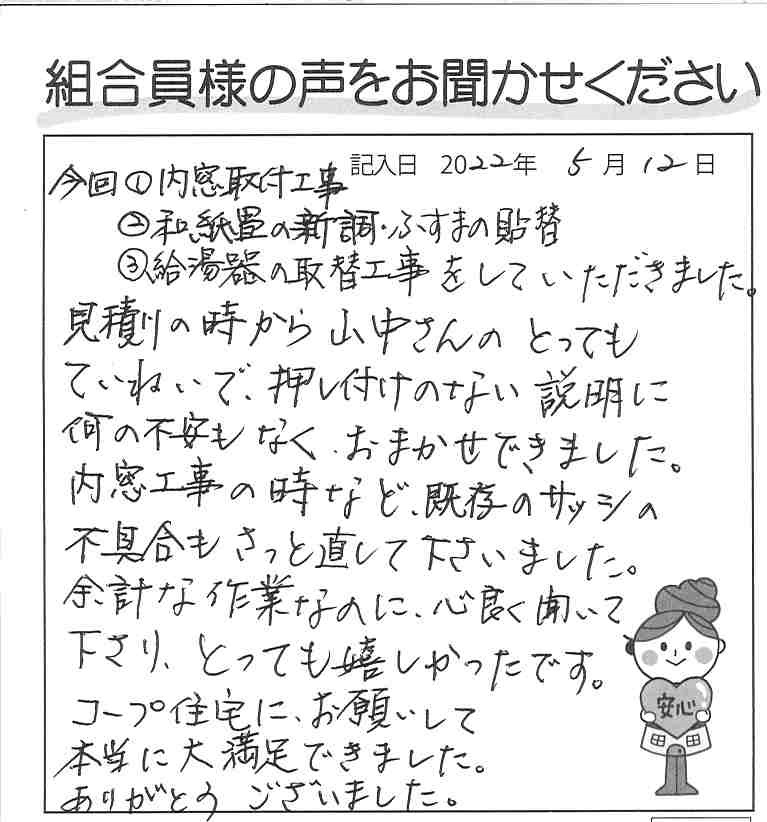 組合員様の声をお聞かせください
記入日 2022年 5月12日
今回①内窓取付工事
②和紙畳の新調・ふすまの貼替
③給湯器の取替工事をしていただきました。
見積りの時から山中さんのとっても
ていねいで、押し付けのない説明に
何の不安もなく、おまかせできました。
内窓工事の時など、既存のサッシの
不具合もさっと直して下さいました。
余計な作業なのに、心良く聞いて
下さり、とっても嬉しかったです。
コープ住宅に、お願いして
本当に大満足できました。
ありがとうございました。
安心